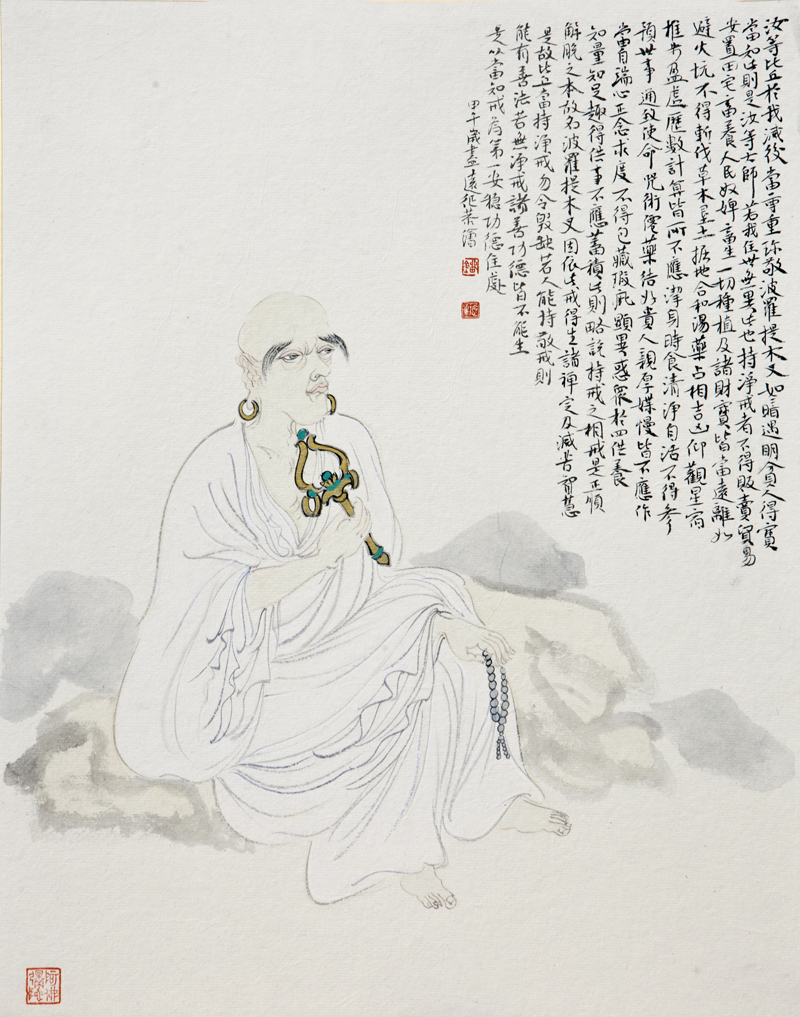 汝等比丘於我滅後當尊重珍敬波羅提木叉如暗遇明貧人得寶
當知此則是汝等大師若我住世無異此也持淨戒者不得販賣貿易
安置田宅畜養人民奴婢畜生一切種植及諸財寶皆當遠離如
避火坑不得斬伐草木墾土掘地合和湯藥占相吉凶仰觀星宿
推步盈虛曆數計算皆所不應潔身時食清淨自活不得參
預世事通致使命咒術僊藥結好貴人親厚媟慢皆不應作
當自端心正念求度不得包藏瑕疵顯異惑眾於四供養
知量知足趣得供事不應蓄積此則略說持戒之相戒是正順
解脫之本故名波羅提木叉因依此戒得生諸禪定及滅苦智慧
是故比丘當持淨戒勿令毀缺若人能持淨戒則
能有善法若無淨戒諸善功德皆不能生
是以當知戒為第一安穩功德住處
甲午歲盡